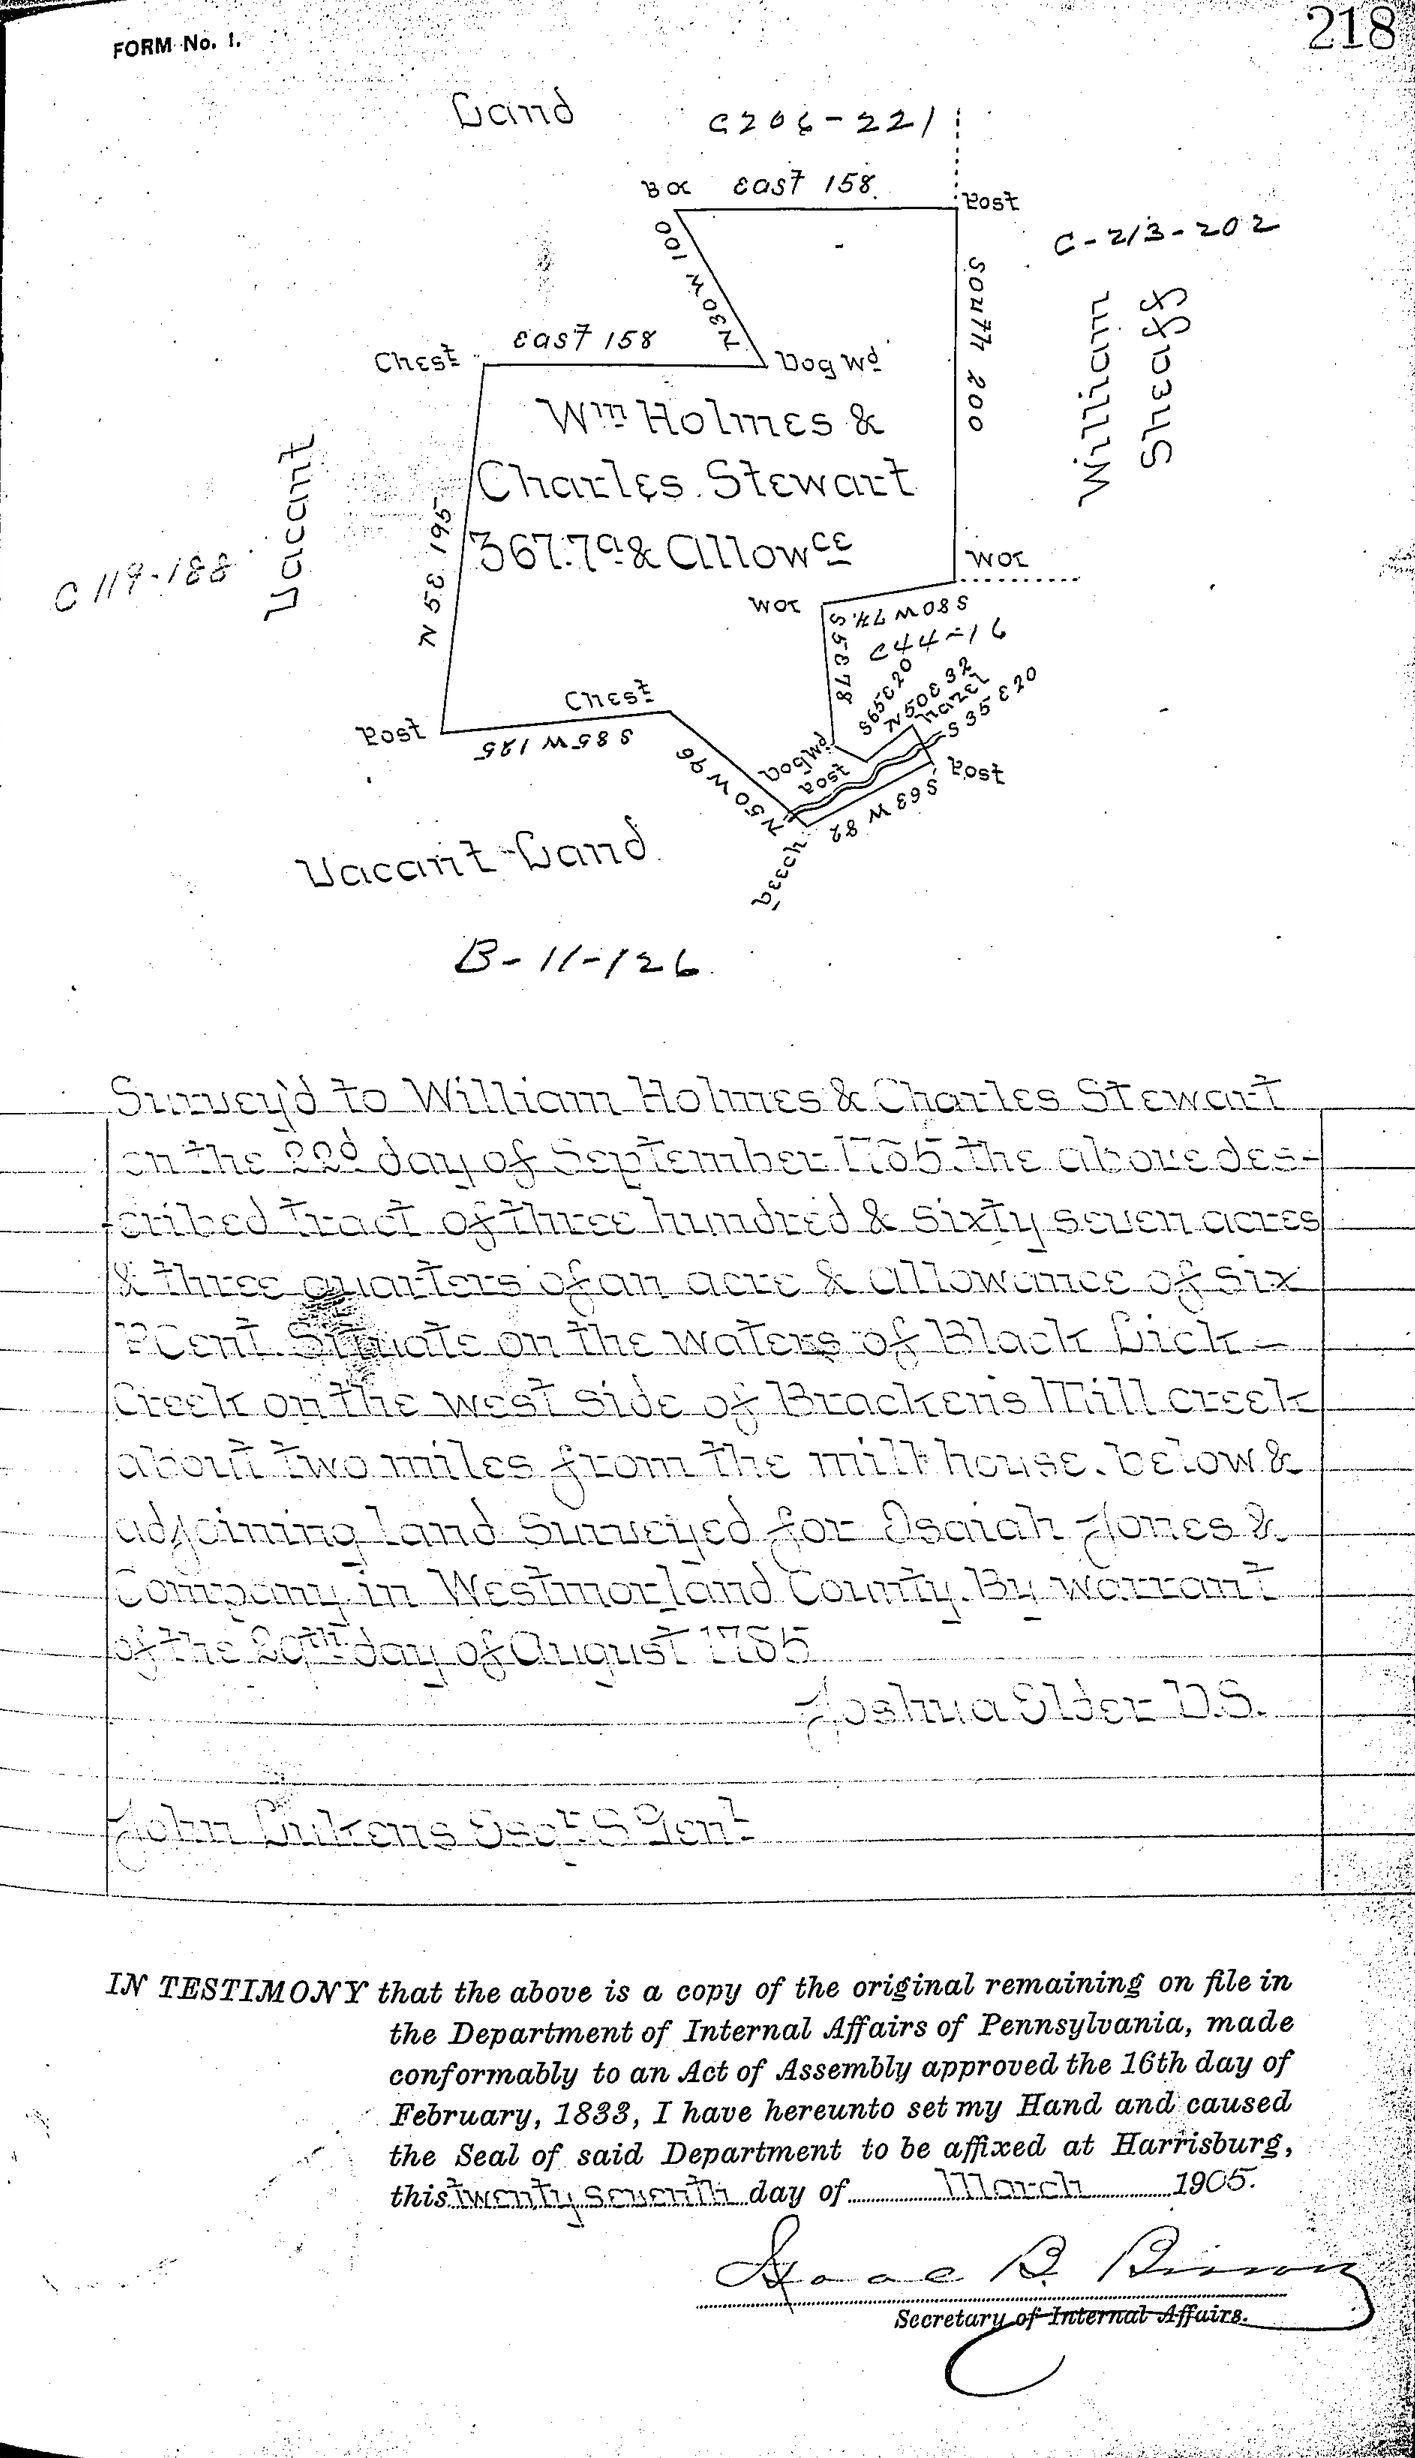 218
FORM No. 1.
Land
C206-221
B oc east 158.
Post
C-213-202
N30W 100
South 200
William
Sheaff
east 158
Chest
Dog Wd
Wm Holmes &
Charles Stewart
367.7a & Allowce
Vacant
C119-188
N 5 E 195
W oc
W oc
S 80 W 74.
S 5 E 78
C44-16
S65E20
N50E 32
hazel
S 35 E 20
Chest
Post
S 85 W 125
N 50 W 96
Dogwd
Post
S63 W 82
beech
Vacant Land
B-11-126
Survey'd to William Holmes & Charles Stewart
on the 22d day of September 1785 the above des-
cribed tract of three hundred & sixty seven acres
& three quarters of an acre & allowance of six
PCent. Situate on the waters of Black Lick
Creek on the west side of Bracken's Mill creek
about two miles from the mill house. below &
adjoining land Surveyed for Isaiah Jones &
Company in Westmorland County. By warrant
of the 29th day of August 1785
Joshua Elder D.S.
John Lukens Esqr. S Genl
IN TESTIMONY that the above is a copy of the original remaining on file in
the Department of Internal Affairs of Pennsylvania, made
conformably to an Act of Assembly approved the 16th day of
February, 1833, I have hereunto set my Hand and caused
the Seal of said Department to be affixed at Harrisburg,
this twenty seventh day of March 1905.
Isaac B. Brown
Secretary of Internal Affairs.